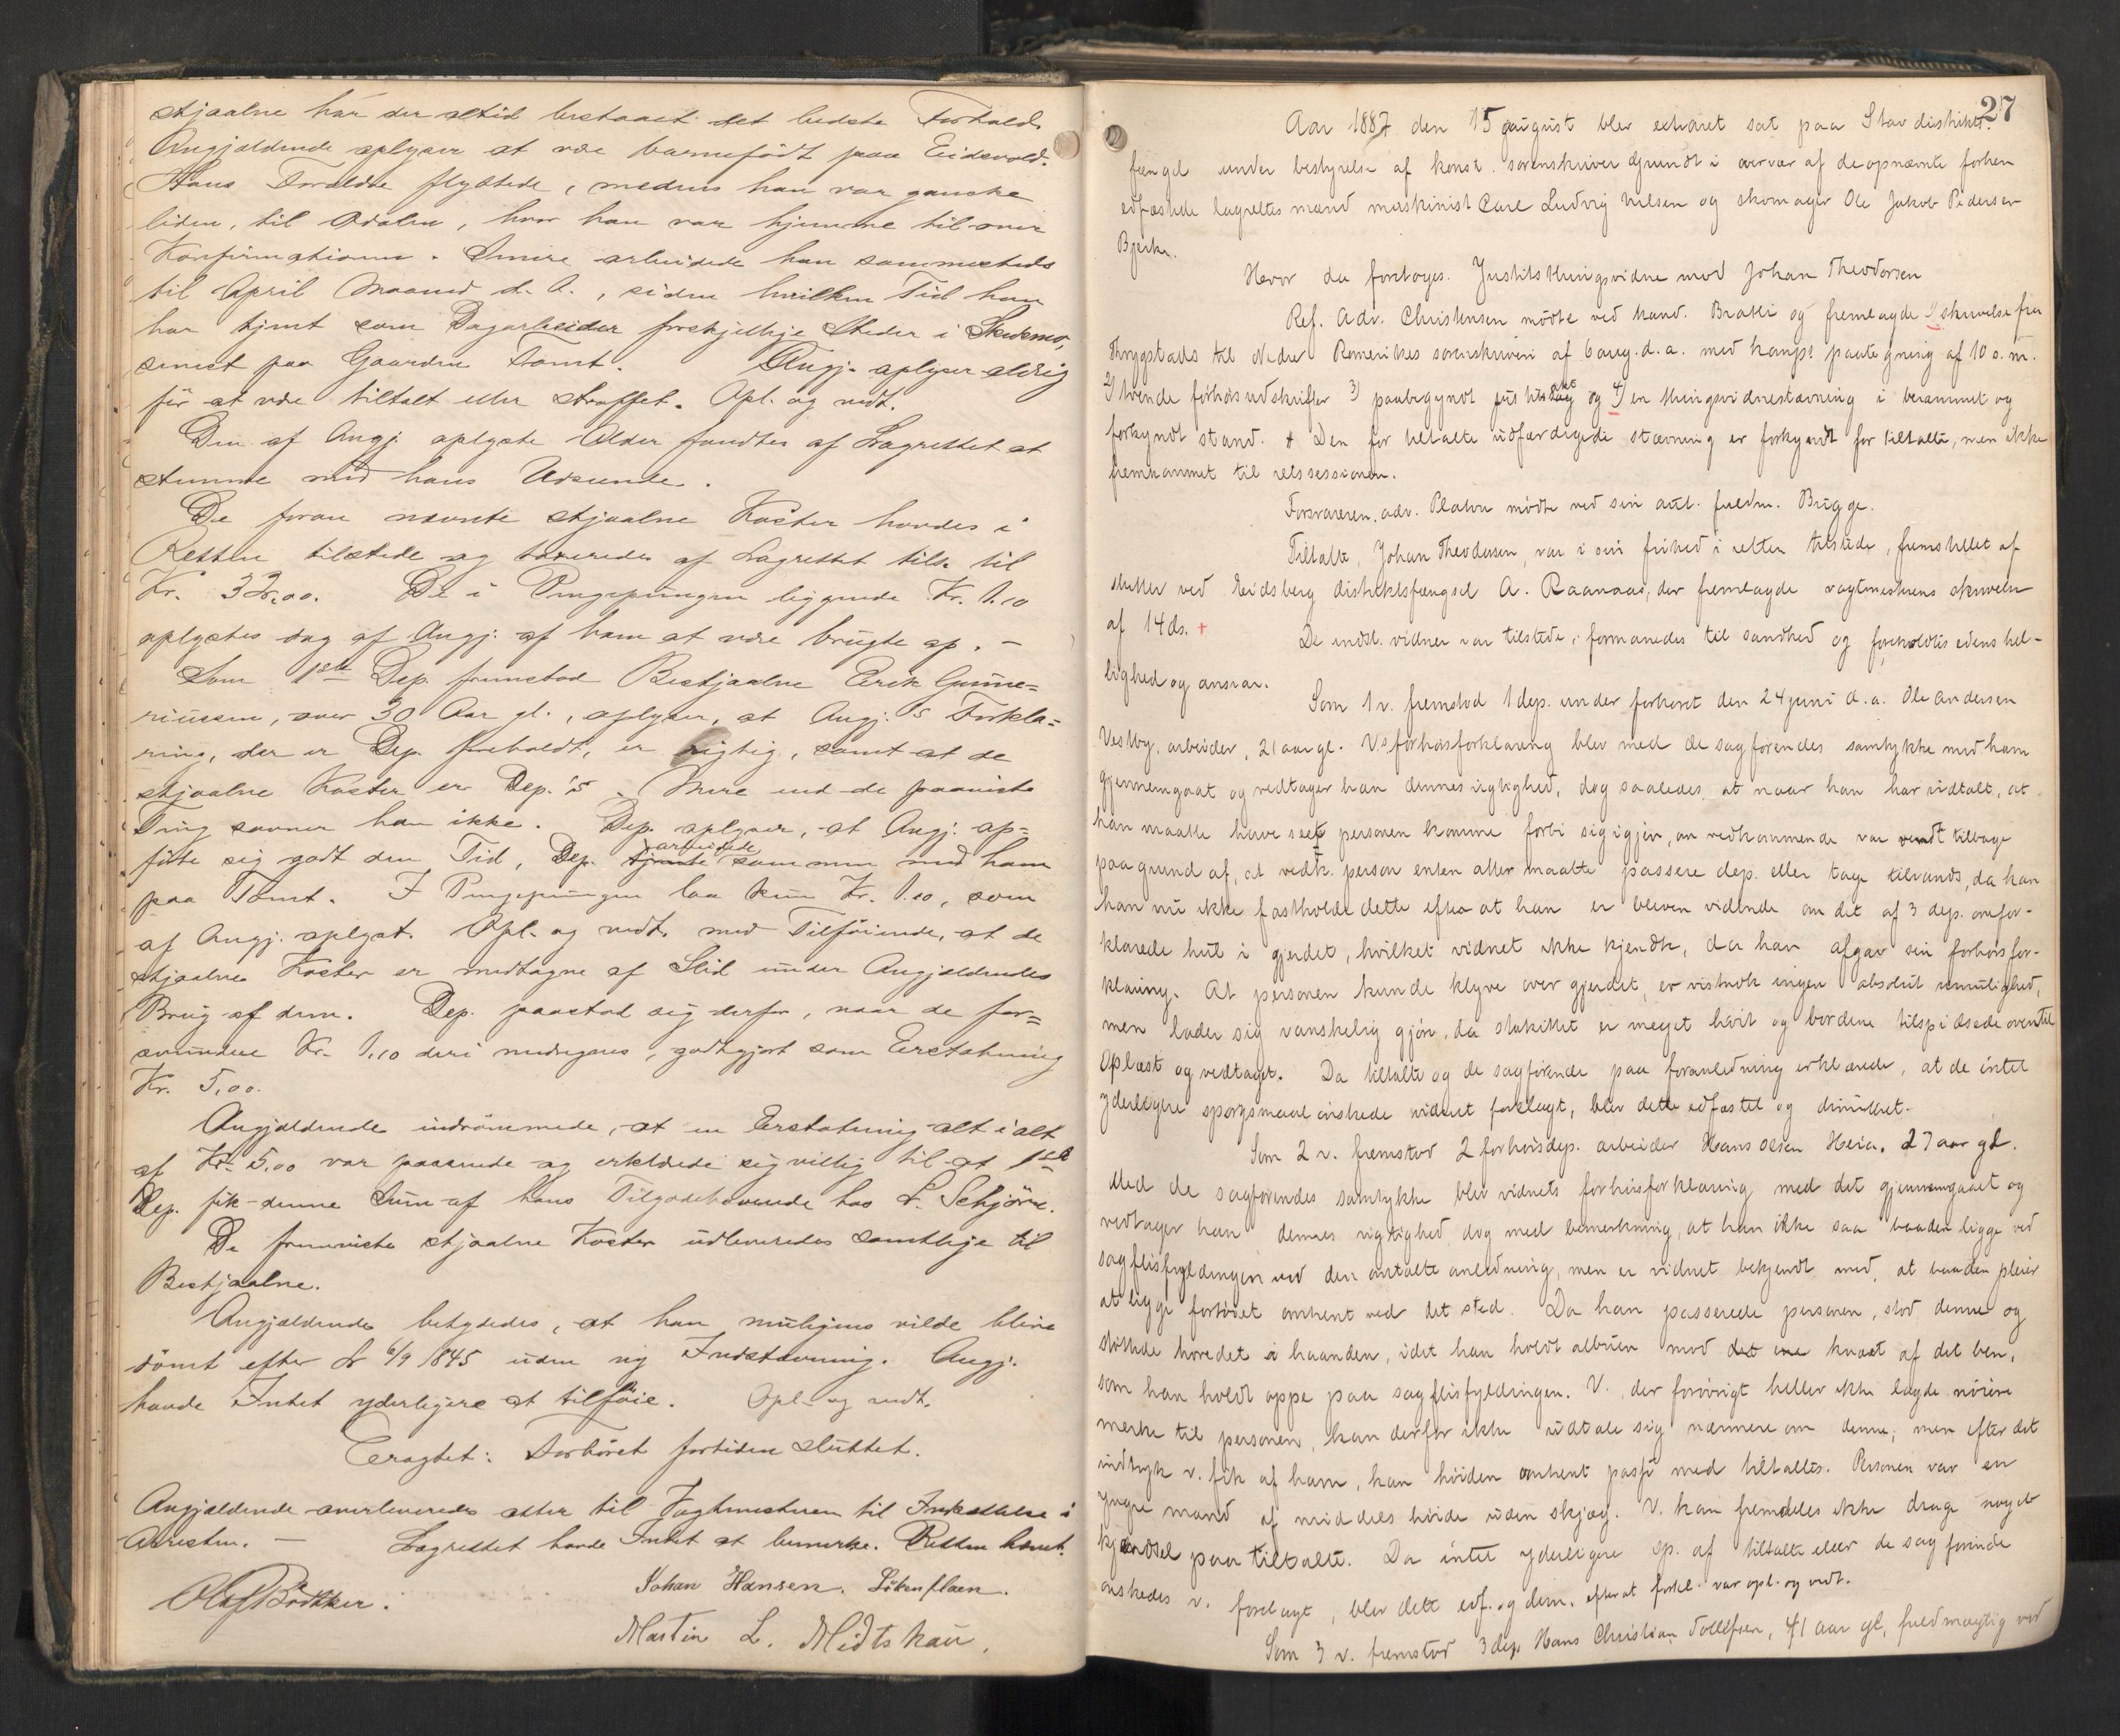 stjaalne har der altid bestaaet det bedste Forhold.
Angjældende oplyser at være barnefödt paa Eidsvold.
Hans Forældre flyttede, medens han var ganske
liden, til Odalen, hvor han var hjemme til over
Konfirmationen. Senere arbeidede han sammesteds
til April Maaned d. A., siden hvilken Tid han
har tjent som Dagarbeider forskjellige Steder i Skedsmo,
senest paa Gaarden Tomt. Angj. oplyser aldrig
för at være tiltalt eller straffet. Opl. og vedt.
Den af Angj. oplyste Alder fandtes af Lagrettet at
stemme med hans Udseende.
De foran nævnte stjaalne Koster havdes i
Retten tilstede og taxeredes af Lagrettet tils. til
Kr. 32,00. De i Pengepungen liggende Kr. 1.10
oplystes dog af Angj. af ham at være brugte op. –
Som 1ste Dep. fremstod Bestjaalne Erik Gunne=
riussen, over 30 Aar gl., oplyser, at Angj.'s Forkla=
ring, der er Dep. foreholdt, er rigtig, samt at de
stjaalne Koster er Dep.'s. Mere end de paaviste
Ting savner han ikke. Dep. oplyser, at Angj. op=
förte sig godt den Tid, Dep. arbeidede sammen med ham
paa Tomt. I Pengepungen laa kun Kr. 1.10, som
af Angj. oplyst. Opl. og vedt. med Tilföiende, at de
stjaalne Koster er medtagne af Slid under Angjældendes
Brug af dem. Dep. paastod sig derfor, naar de for=
svundne Kr. 1,10 deri medregnes, godtgjort som Erstatning
Kr. 5,00.
Angjældende indrömmede, at en Erstatning alt i alt
af Kr. 5,00 var passende og erklærede sig villig til at 1ste
Dep. fik denne Sum af hans Tilgodehavende hos L. Schjörn.
De fremviste stjaalne Koster udleveredes samtlige til
Bestjaalne.
Angjældende betydedes, at han muligens vilde blive
dömt efter Lr 6/9 1845 uden ny Indstævning. Angj.
havde Intet yderligere at tilföie. Opl. og vedt.
Eragtet: Forhöret fortiden sluttet.
Angjældende overleveredes atter til Vagtmesteren til Indsættelse i
Arresten. – Lagrettet havde Intet at bemerke. Retten hævet.
Olaf Bödtker. Johan Hansen. Lökenflaen.
Martin L. Midtskau.
27
Aar 1887 den 15 august blev extraret sat paa Stav distrikts
fængsel under bestyrelse af konst. sorenskriver Grundt i overvær af de opnævnte forhen
edfæstede lagrettesmænd maskinist Carl Ludvig Nilsen og skomager Ole Jakob Pedersen
Bjerke.
Hvor da foretoges Justits thingsvidne mod Johan Theodorsen
Ref. Adv. Christensen mödte ved kand. Bratli og fremlagde 1) skrivelse fra
Thrygstads til Nedre Romerikes sorenskriveri af 6 aug. d.a. med hans paategning af 10 s.m.
2) tvende forhörsudskrifter 3) paabegyndt justitsakt og 4) en thingsvidnestævning i berammet og
forkyndt stand. Den for tiltalte udfærdigede stævning er forkyndt for tiltalte, men ikke
fremkommet til retssessionen.
Forsvareren, adv. Platou mödte ved sin aut. fuldm. Brügge.
Tiltalte, Johan Theodorsen, var i sin frihed i retten tilstede, fremstillet af
slutter ved Eidsberg distriktsfængsel A. Raanaas, der fremlagde vagtmesterens skrivelse
af 14 ds. +
De indst. vidner var tilstede, formanedes til sandhed og foreholdtes edens hel-
lighed og ansvar.
Som 1 v. fremstod 1 dep. under forhöret den 24 juni d.a. Ole Andersen
Vestby, arbeider, 21 aar gl. V.s forhörsforklaring blev med de sagförendes samtykke med ham
gjennemgaaet og vedtager han dennes rigtighed, dog saaledes at naar han har udtalt, at
han maatte have seet personen komme forbi sig igjen, om vedkommende var vendt tilbage
paa grund af, at vedk. person enten atter maatte passere dep. eller tage tilvands, da kan
han nu ikke fastholde dette efter at han er bleven vidende om det af 3 dep. omfor-
klarede hul i gjerdet, hvilket vidnet ikke kjendte, da han afgav sin forhörsfor-
klaring. At personen kunde klyve over gjerdet, er vistnok ingen absolut umulighed,
men lader sig vanskelig gjöre, da stakittet er meget höit og bordene tilspidsede oventil
Oplæst og vedtaget. Da tiltalte og de sagförende paa foranledning erklærede, at de intet
yderligere spörgsmaal önskede vidnet forelagt, blev dette edfæstet og dimitteret.
Som 2 v. fremstod 2 forhörsdep. arbeider Hans Olsen Heia, 27 aar gl.
Med de sagförendes samtykke blev vidnets forhörsforklaring med det gjennemgaaet og
vedtager han dennes rigtighed dog med bemerkning, at han ikke saa baaden ligge ved
sagflisfyldingen ved den omtalte anledning, men er vidnet bekjendt med, at baaden pleier
at ligge fortöiet omtrent ved det sted. Da han passerede personen, stod denne og
stöttede hovedet i haanden, idet han holdt albuen mod knæet af det ben,
som han holdt oppe paa sagflisfyldingen. V., der forövrigt heller ikke lagde nöiere
merke til personen, kan derfor ikke udtale sig nærmere om denne; men efter det
indtryk v. fik af ham, kan höiden omtrent passe med tiltaltes. Personen var en
yngre mand af middels höide uden skjæg. V. kan fremdeles ikke drage noget
kjendsel paa tiltalte. Da intet yderligere sp. af tiltalte eller de sagförende
önskedes v. forelagt, blev dette edf. og dim. efterat forkl. var opl. og vedt.
Som 3 v. fremstod 3 dep. Hans Christian Tollefsen, 41 aar gl, fuldmægtig ved